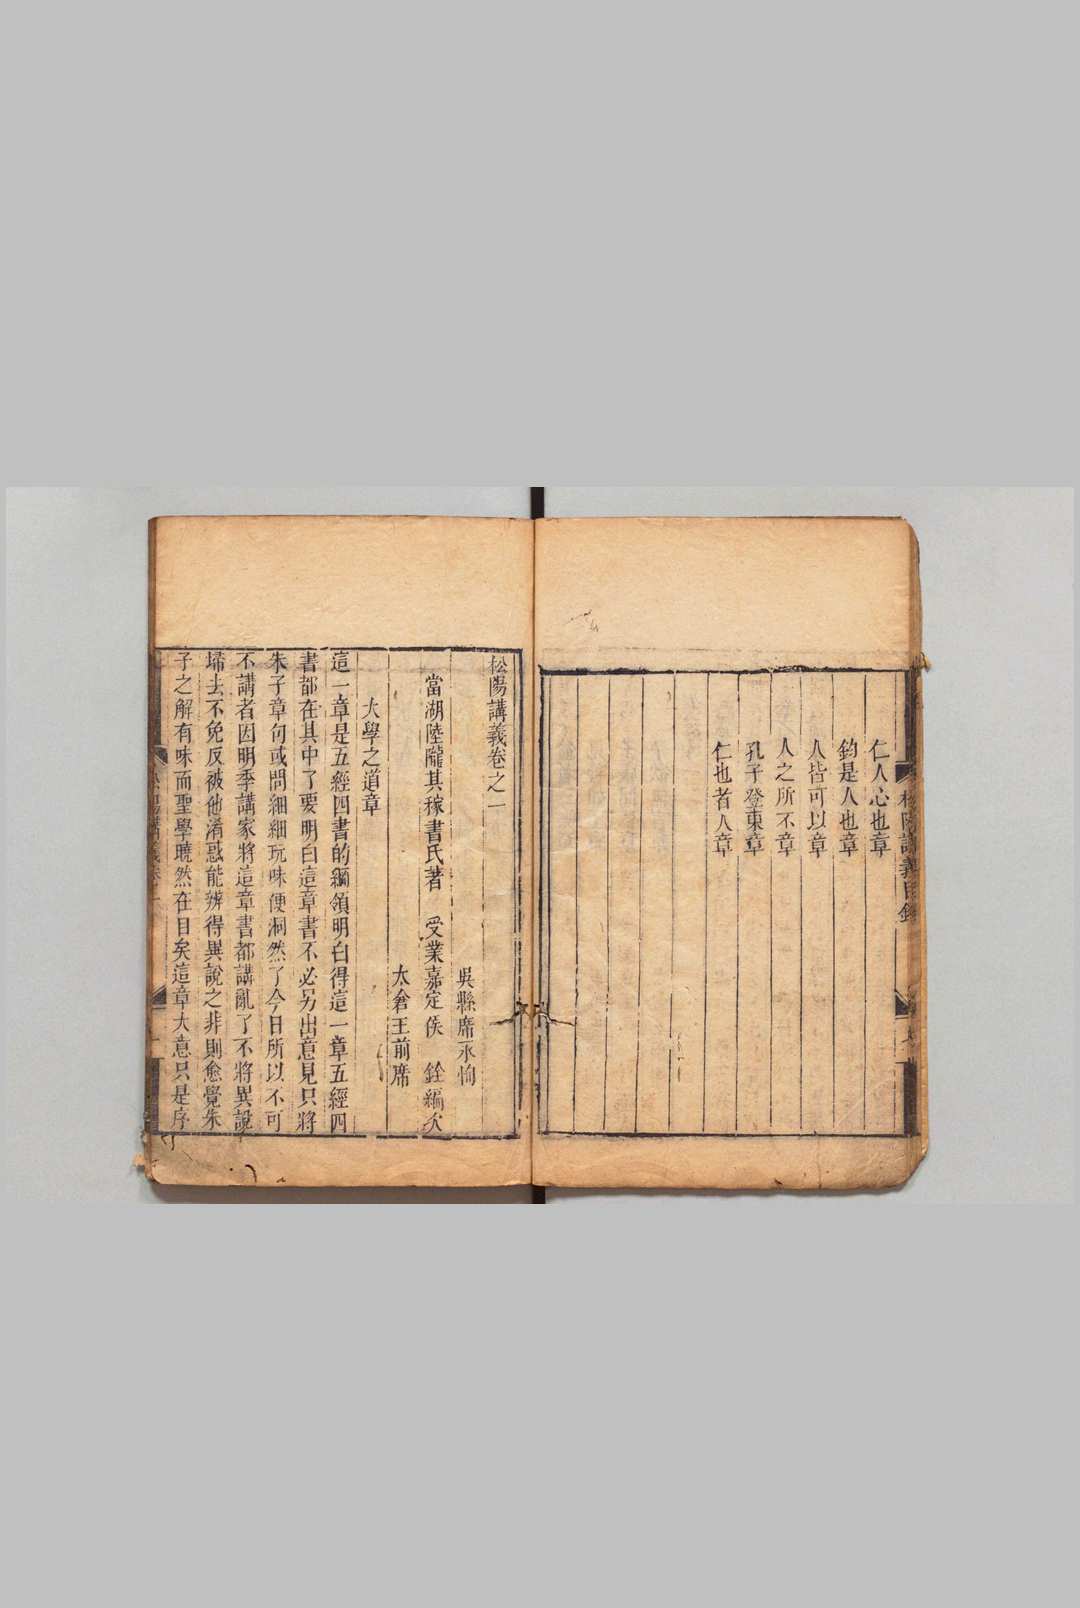 松陽講義目錄
仁人心也章
鈞是人也章
人皆可以章
人之所不章
孔子登東章
仁也者人章
松陽講義卷之一
吳縣席永恂
當湖陸隴其稼書氏著 受業嘉定侯 銓編次
太倉王前席
大學之道章
這一章是五經四書的綱領明白得這一章五經四
書都在其中了要明白這章書不必另出意見只將
朱子章句或問細細玩味便洞然了今日所以不可
不講者因明季講家將這章書都講亂了不將異說
埽去不免反被他淆惑能辨得異說之非則愈覺朱
子之解有味而聖學曉然在目矣這章大意只是序